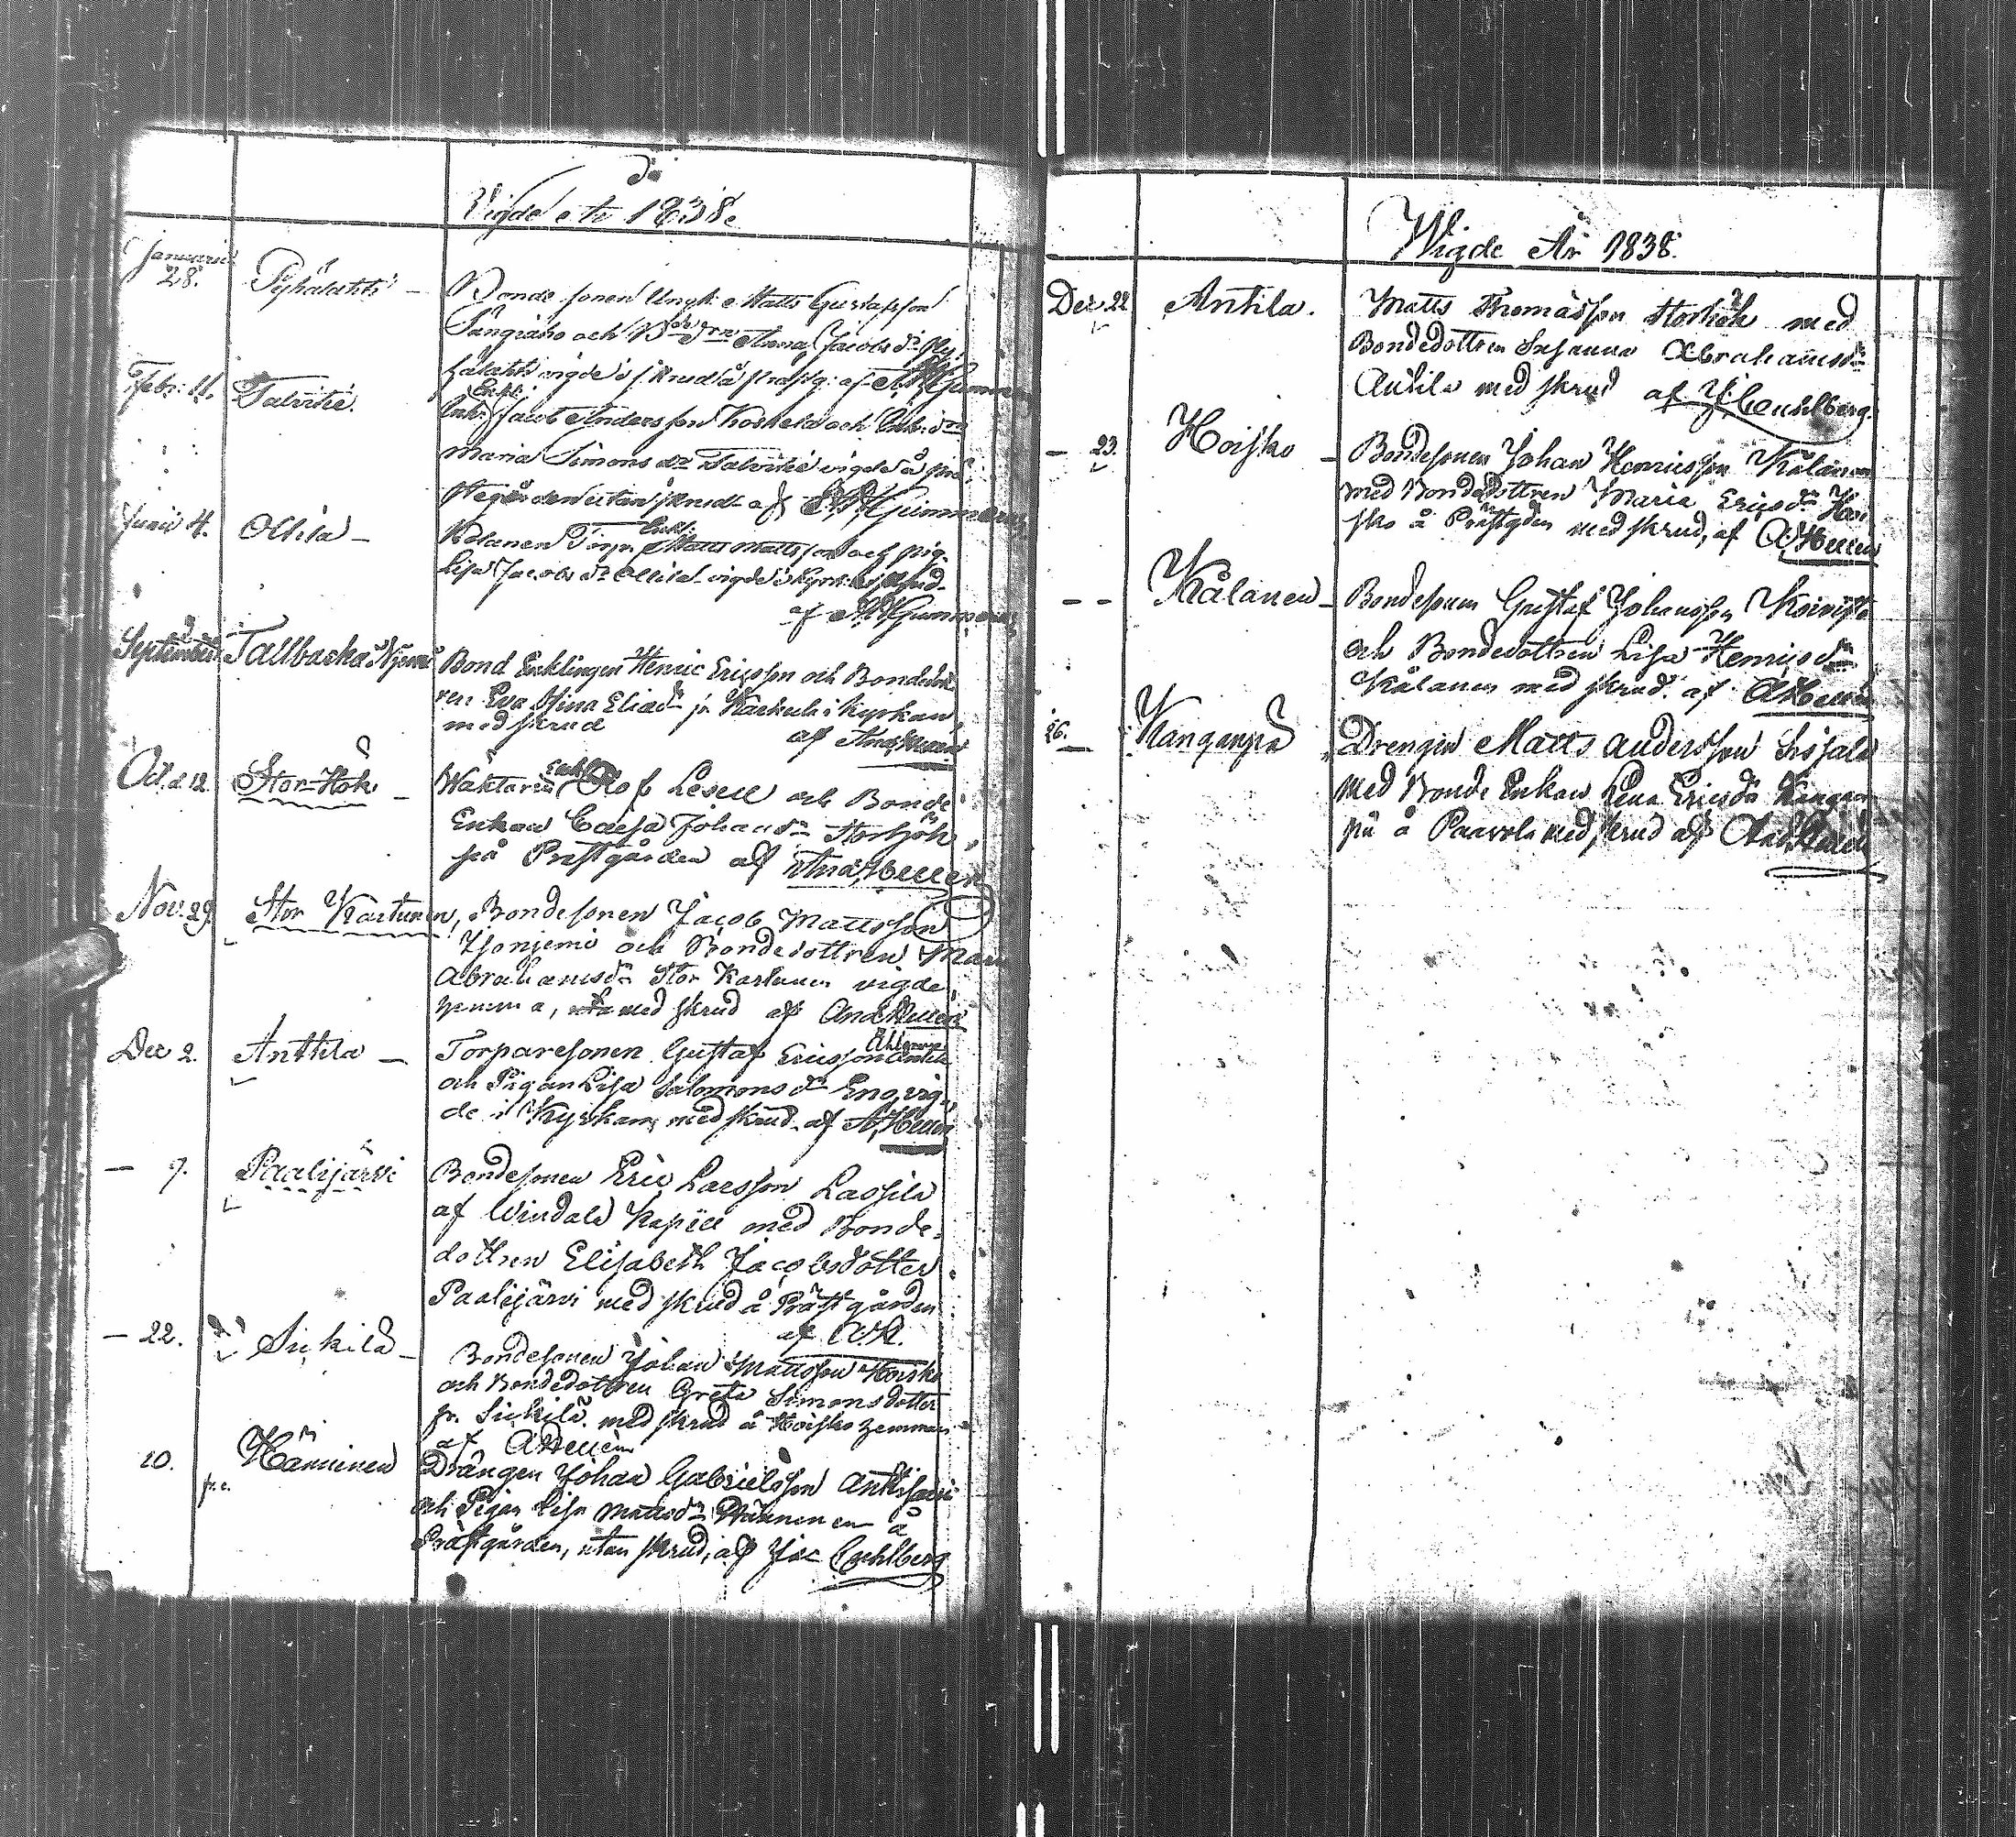 Vigde År 1838.
Januarii 28. Pyhälahti – Bondesonen Ungk. Matts Gustafsson
och Jacobs dr Py-
hälahti vigde i skrud å prästg: af
Febr: 11. Talvitie. Enkl. Jacob Andersson Koskela och
Maria Simons dr Talvitie vigde å prä-
stegården utan skrud af
Junii 4. Ollila – Kålanen Torp. Enkl. Matts Mattsson och pig.
Lisa Jacobs dr Ollila vigde i Kyrk: skrud
af
September Tallbacka Bond Encklingen Henric Ericsson och Bondedott-
ren Eva Stina Eliædr fr i Kyrkan,
med skrud af And. Hellén
Oct. d. 12. Stor-Hök – Wäktaren Enkl. Olof Lesell och Bonde
Enkan Caisa Johansdr Storhök,
på Prästgården af And. Hellén
Nov. 29. Stor Kartunen, Bondesonen Jacob Mattsson
och Bondedottren Maria
Abrahamsdr Stor Kartunen vigde,
hemma, med skrud af And Hellén
Dec 2. Anttila – Torparesonen Gustaf Ericsson
och Pigan Lisa Salomons dr Eng vig-
de i Kyrkan, med skrud af A. Hellén
– 9. Paalijärvi Bondesonen Eric Larsson Lassila
af Windala Kapell med Bonde-
dottren Elisabeth Jacobsdotter
Paalijärvi med skrud å Prästgården
af AH.
– 22. Siikilä – Bondesonen Johan Mattsson Hoisko
och Bondedottren Greta Simonsdotter
fr. Siikilä med skrud å Hoisko hemman
af A Hellén
10. Hänninen Drängen Johan Gabrielsson
och Pigan Lisa Mattsdr Hänninen å
Prästgården, utan skrud, af Jac Cuhlberg
Wigde År 1838.
Dec 22 Antila. Matts Thomasson Storhök med
Bondedottren Susanna Abrahamsdr
Antila med skrud af J. Cuhlberg.
– 23. Hoisko – Bondesonen Johan Henricsson Kålanen
med Bondedottren Maria Ericsdr Hoi-
sko å Prästgden med skrud, af A Hellén
– – Kålanen – Bondesonen Gustaf Johansson Koivisto
och Bondedottren Lisa Henricsdr
Kålanen med skrud af A Hellén
26. Kanganpä Drengen Matts Andersson
med Bonde Enkan Lena Ericsdr Kangan-
pä å Paavola med skrud af And. Hellén